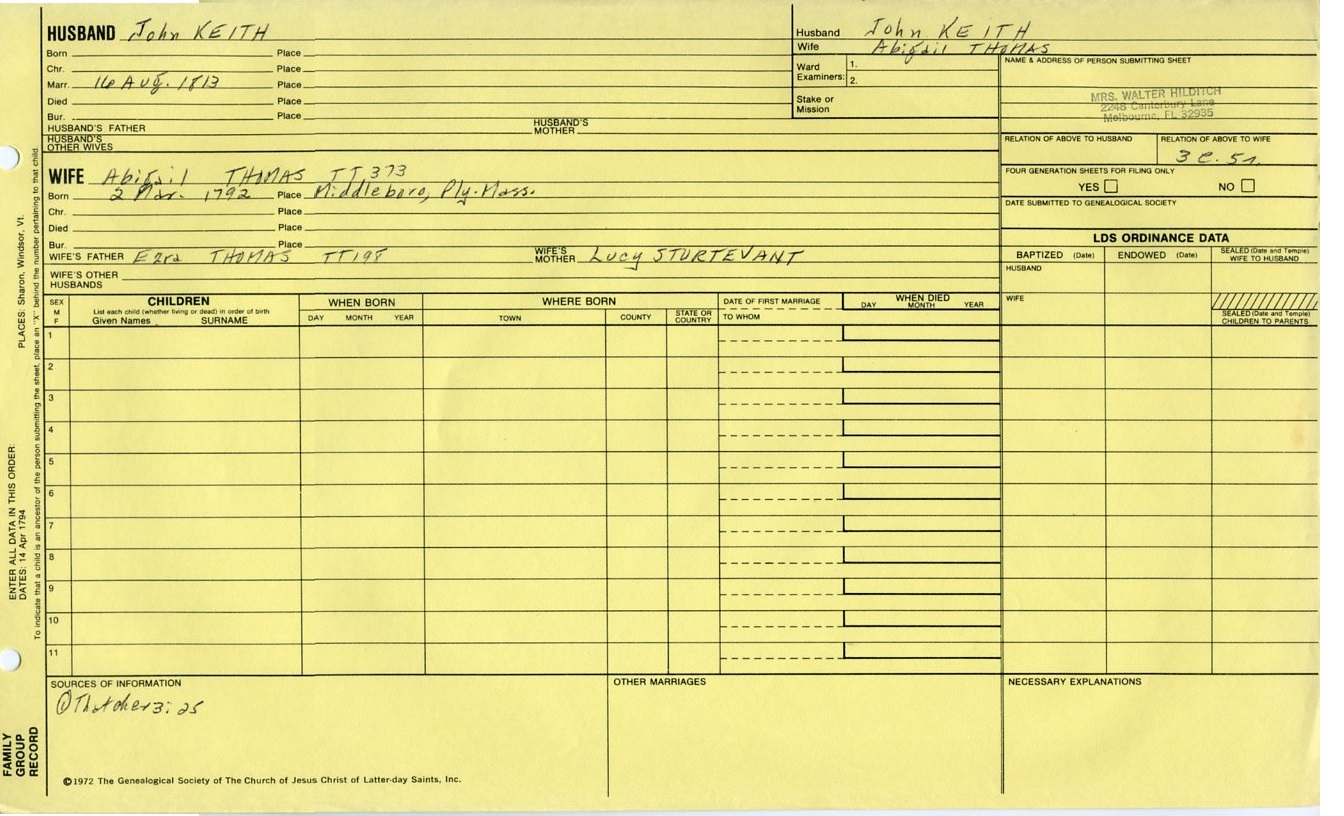 HUSBAND John KEITH
Born Place
Chr. Place
Marr. 16 Aug. 1813 Place
Died Place
Bur. Place
HUSBAND'S FATHER HUSBAND'S MOTHER
HUSBAND'S OTHER WIVES
Husband John KEITH
Wife Abigail THOMAS
Ward Examiners: 1.
2.
Stake or Mission
NAME & ADDRESS OF PERSON SUBMITTING SHEET
MRS. WALTER HILDITCH
2248 Canterbury Lane
Melbourne, FL 32935
RELATION OF ABOVE TO HUSBAND RELATION OF ABOVE TO WIFE
3 C. 5r.
FOUR GENERATION SHEETS FOR FILING ONLY
YES NO
DATE SUBMITTED TO GENEALOGICAL SOCIETY
WIFE Abigail THOMAS TT373
Born 2 Mar. 1792 Place Middleboro, Ply. Mass.
Chr. Place
Died Place
Bur. Place
WIFE'S FATHER Ezra THOMAS TT198 WIFE'S MOTHER Lucy STURTEVANT
WIFE'S OTHER HUSBANDS
LDS ORDINANCE DATA
BAPTIZED (Date) ENDOWED (Date) SEALED (Date and Temple) WIFE TO HUSBAND
HUSBAND
WIFE
SEALED (Date and Temple) CHILDREN TO PARENTS
SEX M F
CHILDREN
List each child (whether living or dead) in order of birth
Given Names SURNAME
WHEN BORN
DAY MONTH YEAR
WHERE BORN
TOWN COUNTY STATE OR COUNTRY
DATE OF FIRST MARRIAGE
TO WHOM
WHEN DIED
DAY MONTH YEAR
1
2
3
4
5
6
7
8
9
10
11
SOURCES OF INFORMATION
① Thatcher 3: 25
OTHER MARRIAGES
NECESSARY EXPLANATIONS
©1972 The Genealogical Society of The Church of Jesus Christ of Latter-day Saints, Inc.
FAMILY GROUP RECORD
ENTER ALL DATA IN THIS ORDER:
DATES: 14 Apr 1794 PLACES: Sharon, Windsor, Vt.
To indicate that a child is an ancestor of the person submitting the sheet, place an "X" behind the number pertaining to that child.